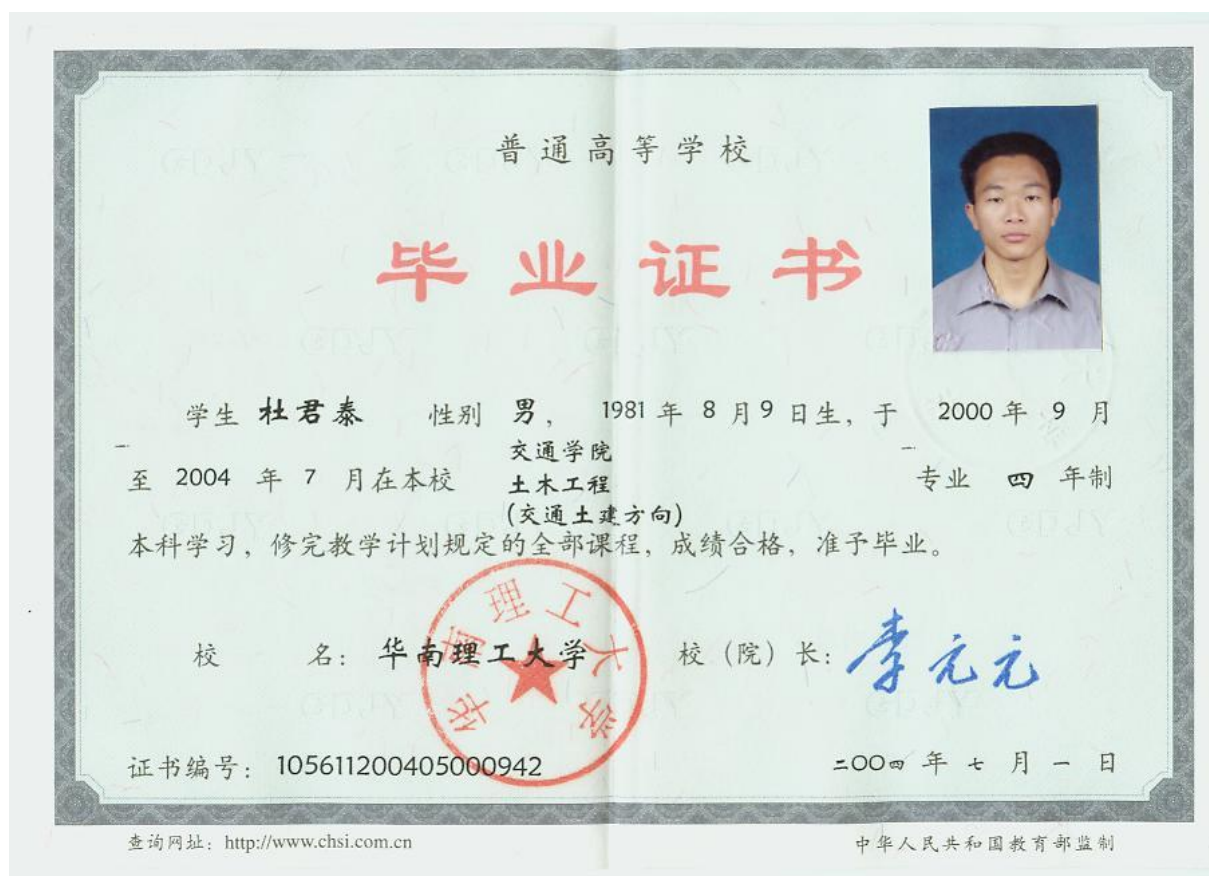 普通高等学校
毕业证书
学生 杜君泰 性别 男, 1981 年 8 月 9 日生, 于 2000 年 9 月
至 2004 年 7 月在本校 交通学院 土木工程 (交通土建方向) 专业 四 年制
本科学习, 修完教学计划规定的全部课程, 成绩合格, 准予毕业。
校 名: 华南理工大学 校 (院) 长: 李元元
华南理工大学
证书编号: 105611200405000942 二〇〇四 年 七 月 一 日
查询网址: http://www.chsi.com.cn 中华人民共和国教育部监制